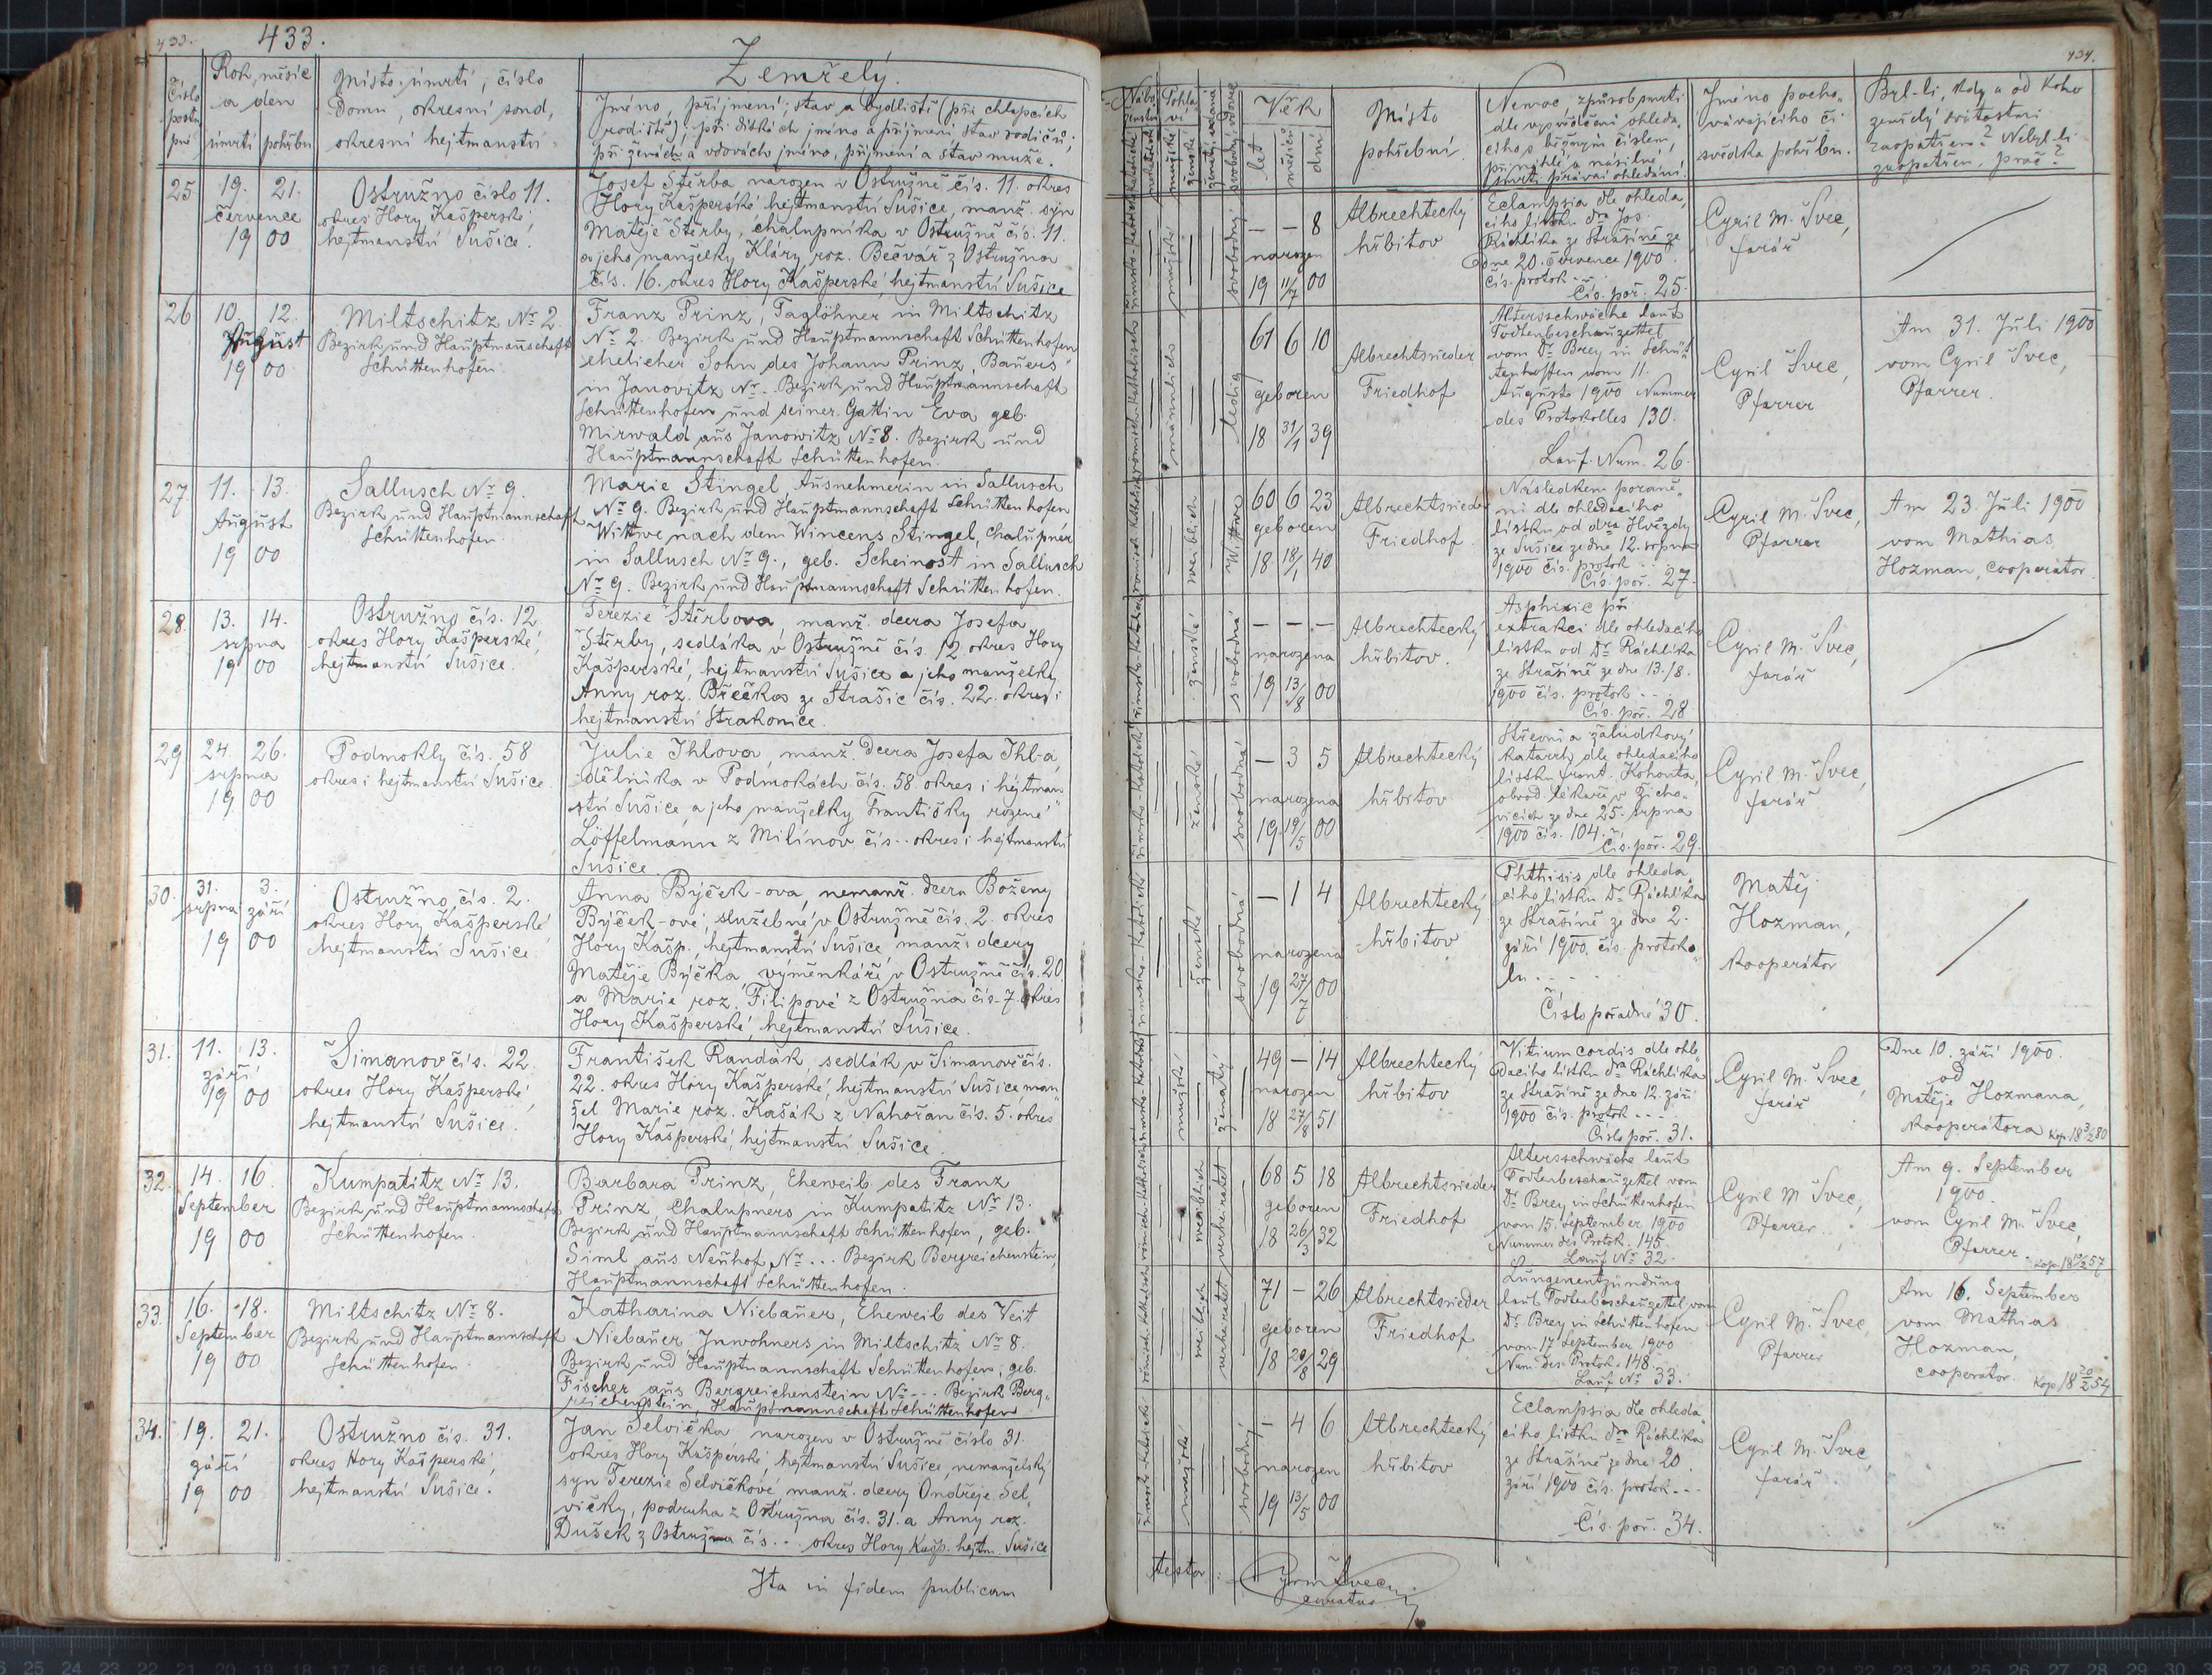 433.
433.
Číslo
postu
pné
Rok, měsíc
a den
úmrtí
pohřbu
Místo úmrtí, číslo
domu, okresní soud,
okresní hejtmanství
Zemřelý.
Jméno, příjmení; stav a bydliště (při chlapcích
rodiště); při dítkách jméno a příjmení stav rodičů;
při ženách a vdovách jméno, příjmení a stav muže.
25
19.
21.
července
19 00
Ostružno číslo 11.
okres Hory Kašperské
hejtmanství Sušice.
Josef Štěrba narozen v Ostružně čís. 11. okres
Hory Kašperské hejtmanství Sušice, manž. syn
Matěje Štěrby, chalupníka v Ostružně čís. 11.
a jeho manželky Kláry roz. Bečvář z Ostružna
čís. 16. okres Hory Kašperské, hejtmanství Sušice
26
10.
12.
August
19 00
Miltschitz Nr 2.
Bezirk und Hauptmannschaft
Schüttenhofen.
Franz Prinz, Taglöhner in Miltschitz
Nr 2. Bezirk und Hauptmannschaft Schüttenhofen
ehelicher Sohn des Johann Prinz, Bauers
in Janovitz Nr. Bezirk und Hauptmannschaft
Schüttenhofen und seiner Gattin Eva geb.
Mirwald aus Janowitz Nr 8. Bezirk und
Hauptmannschaft Schüttenhofen.
27.
11.
13.
August
19 00
Sallusch Nr 9.
Bezirk und Hauptmannschaft
Schüttenhofen.
Marie Stingel, Ausnehmerin in Sallusch
Nr 9. Bezirk und Hauptmannschaft Schüttenhofen
Wittwe nach dem Wincens Stingel, Chalupner
in Sallusch Nr 9., geb. Scheinost in Sallusch
Nr 9. Bezirk und Hauptmannschaft Schüttenhofen.
28.
13.
14.
srpna
19 00
Ostružno čís. 12
okres Hory Kašperské,
hejtmanství Sušice.
Terezie Štěrbova manž. dcera Josefa
Štěrby, sedláka v Ostružně čís. 12 okres Hory
Kašperské, hejtmanství Sušice a jeho manželky
Anny roz. Břečka ze Strašic čís. 22. okres i
hejtmanství Strakonice.
29
24.
26.
srpna
19 00
Podmokly čís. 58
okres i hejtmanství Sušice.
Julie Ihlova, manž. dcera Josefa Ihl-a,
dělníka v Podmokách čís. 58. okres i hejtman
ství Sušice a jeho manželky Františky rozené
Löffelmann z Milínov čís.. okres i hejtmanství
Sušice.
30.
31.
3.
srpna září
19 00
Ostružno čís. 2.
okres Hory Kašperské
hejtmanství Sušice.
Anna Býček-ova, nemanž. dcera Boženy
Býček-ové, služebné v Ostružně čís. 2. okres
Hory Kašp., hejtmanství Sušice, manž. dcery
Matěje Býčka, výměnkáře v Ostružně čís. 20.
a Marie, roz. Filipové z Ostružna čís. 7. okres
Hory Kašperské, hejtmanství Sušice.
31.
11.
13.
září
19 00
Šimanov čís. 22.
okres Hory Kašperské,
hejtmanství Sušice.
František Randák, sedlák v Šimanově čís.
22. okres Hory Kašperské, hejtmanství Sušice, man„
žel Marie roz. Kašák z Nahořan čís. 5. okres
Hory Kašperské, hejtmanství Sušice.
32.
14.
16.
September
19 00
Kumpatitz Nr 13.
Bezirk und Hauptmannschaft
Schüttenhofen.
Barbara Prinz, Eheweib des Franz
Prinz, Chalupners in Kumpatitz Nr 13.
Bezirk und Hauptmannschaft Schüttenhofen, geb.
Siml aus Neuhof Nr... Bezirk Bergreichenstein,
Hauptmannschaft Schüttenhofen.
33.
16.
18.
September
19 00
Miltschitz Nr 8.
Bezirk und Hauptmannschaft
Schüttenhofen.
Katharina Niebauer, Eheweib des Veit
Niebauer, Inwohners in Miltschitz Nr 8.
Bezirk und Hauptmannschaft Schüttenhofen, geb.
Fischer aus Bergreichenstein Nr... Bezirk Berg„
reichenstein, Hauptmannschaft Schüttenhofen
34.
19.
21.
září
19 00
Ostružno čís. 31.
okres Hory Kašperské,
hejtmanství Sušice.
Jan Selvička narozen v Ostružně číslo 31.
okres Hory Kašperské, hejtmanství Sušice, nemanželský
syn Terezie Selvičkové manž. dcery Ondřeje Sel„
vičky, podruha z Ostružna čís. 31. a Anny roz.
Dušek z Ostružna čís... okres Hory Kašp. hejtm. Sušice
Ita in fidem publicam
434.
Věk
let
měsíců
dní
Místo
pohřební.
Nemoc, způsob smrti
dle vysvědčení ohleda„
cího s běžným číslem,
při náhlé a násilné
smrti právní ohledání.
Jméno pocho„
vávajícího či
svědka pohřbu.
Byl-li, kdy a od koho
zemřelý svátostmi
zaopatřen? Nebyl-li
zaopatřen, proč?
mužské
svobodný
— — 8
narozen
19 11/7 00
Albrechtecký
hřbitov
Eclampsia dle ohleda„
cího lístku dra Jos.
Ráchlíka ze Strašíně ze
dne 20. července 1900.
čís. protok...
Čís. poř. 25.
Cyril M. Švec,
farář
männlich
ledig
61 6 10
geboren
18 31/1 39
Albrechtsrieder
Friedhof
Altersschwäche laut
Todtenbeschauzettel
vom Dr Brey in Schüt
tenhoffen vom 11.
Augusts 1900 Nummer
des Protokolles 130.
Lauf. Num. 26.
Cyril Švec,
Pfarrer
Am 31. Juli 1900
vom Cyril Švec,
Pfarrer.
weiblich
Wittwe
60 6 23
geboren
18 18/1 40
Albrechtsrieder
Friedhof.
Následkem poraně„
ní dle ohledacího
lístku od dra Hvězdy
ze Sušice ze dne 12. srpna
1900 čís. protok...
Čís. poř. 27.
Cyril M. Švec,
Pfarrer
Am 23. Juli 1900
vom Mathias
Hozman, cooperator.
ženské
svobodná
— — —
narozena
19 13/8 00
Albrechtecký
hřbitov.
Asphixie při
extrakci dle ohledacího
lístku od Dr Ráchlíka
ze Strašíně ze dne 13./8.
1900 čís. protok...
Čís. poř. 28
Cyril M. Švec,
farář
ženské
svobodná
— 3 5
narozena
19 19/5 00
Albrechtecký
hřbitov
Střevní a žaludkový
katarrh dle ohledacího
lístku Frant. Kohouta,
obvod. lékaře v Žicho„
vicích ze dne 25. srpna
1900 čís. 104.
Čís. poř. 29.
Cyril M. Švec,
farář
ženské
svobodná
— 1 4
narozena
19 27/7 00
Albrechtecký
hřbitov
Phthisis dle ohleda„
cího lístku Dr Ráchlíka
ze Strašíně ze dne 2.
září 1900. čís. protoko„
lu....
Číslo pořadné 30.
Matěj
Hozman,
kooperátor
mužské
ženatý
49 — 14
narozen
18 27/8 51
Albrechtecký
hřbitov
Vitium cordis dle ohle„
dacího lístku dra Ráchlíka
ze Strašíně ze dne 12. září
1900 čís. protok...
Číslo poř. 31.
Cyril M. Švec,
farář
Dne 10. září 1900.
od
Matěje Hozmana,
kooperátora Kop. 18 3/2 80
weiblich
verheiratet
68 5 18
geboren
18 26/3 32
Albrechtsrieder
Friedhof
Altersschwäche laut
Todtenbeschauzettel vom
Dr Brey in Schüttenhofen
vom 15. September 1900
Nummer des Protok. 145.
Lauf Nr 32.
Cyril M Švec,
Pfarrer.
Am 9. September
1900.
vom Cyril M. Švec,
Pfarrer.
weiblich
verheiratet
71 — 26
geboren
18 20/8 29
Albrechtsrieder
Friedhof
Lungenentzündung
laut Todtenbeschauzettel vom
Dr Brey in Schüttenhofen
vom 17 September 1900
Num. des Protok. 148.
Lauf Nr 33.
Cyril M. Švec,
Pfarrer
Am 16. September
vom Mathias
Hozman,
cooperator.
mužské
svobodný
— 4 6
narozen
19 13/5 00
Albrechtecký
hřbitov
Eclampsia dle ohleda„
cího lístku dra Ráchlíka
ze Strašíně ze dne 20.
září 1900 čís. protok...
Čís. poř. 34.
Cyril M. Švec,
farář
testor:
curatus